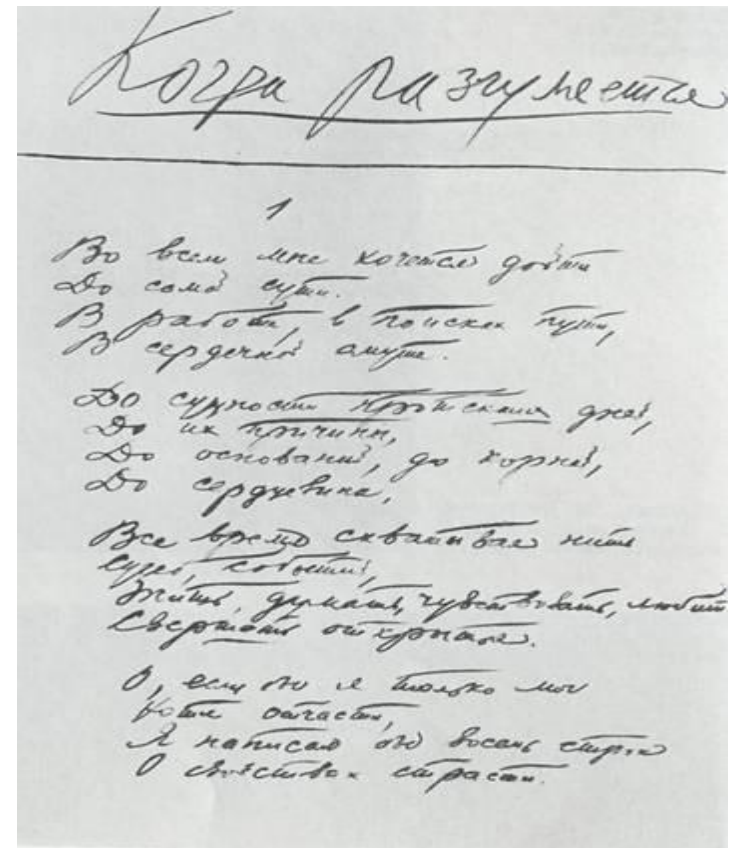 Когда разгуляется
1
Во всем мне хочется дойти
До самой сути.
В работе, в поисках пути,
В сердечной смуте.
До сущности протекших дней,
До их причины,
До оснований, до корней,
До сердцевины.
Все время схватывая нить
Судеб, событий,
Жить, думать, чувствовать, любить
Свершать открытья.
О, если бы я только мог
Хотя отчасти,
Я написал бы восемь строк
О свойствах страсти.